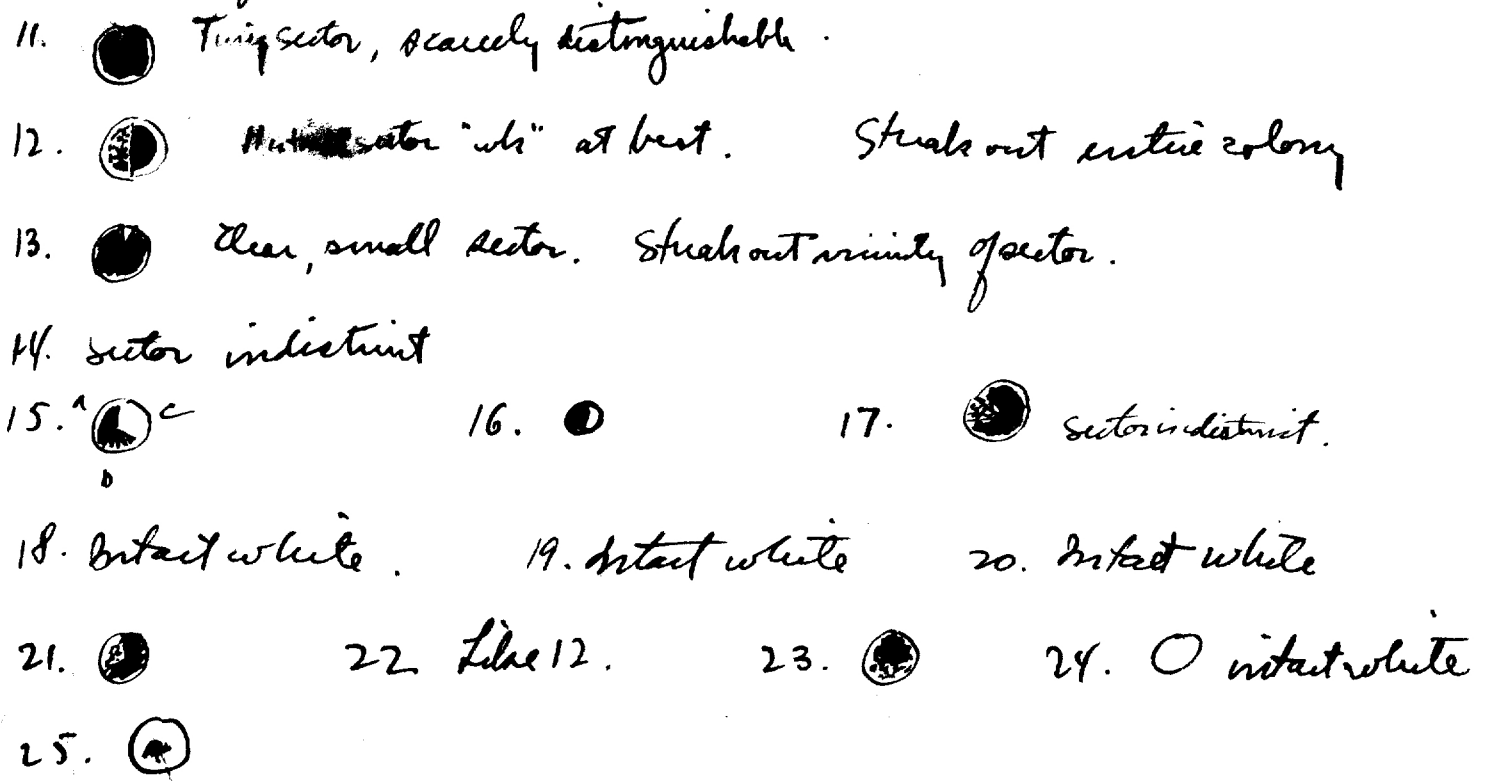 11. Tiny sector, scarcely distinguishable.
12. sector "wh" at best. Streak out entire colony
13. Clear, small sector. Streak out vicinity of sector.
14. sector indistinct
15. A C 16. 17. sector indistinct.
b
18. Intact white. 19. Intact white 20. Intact white
21. 22 Like 12. 23. 24. intact white
25.